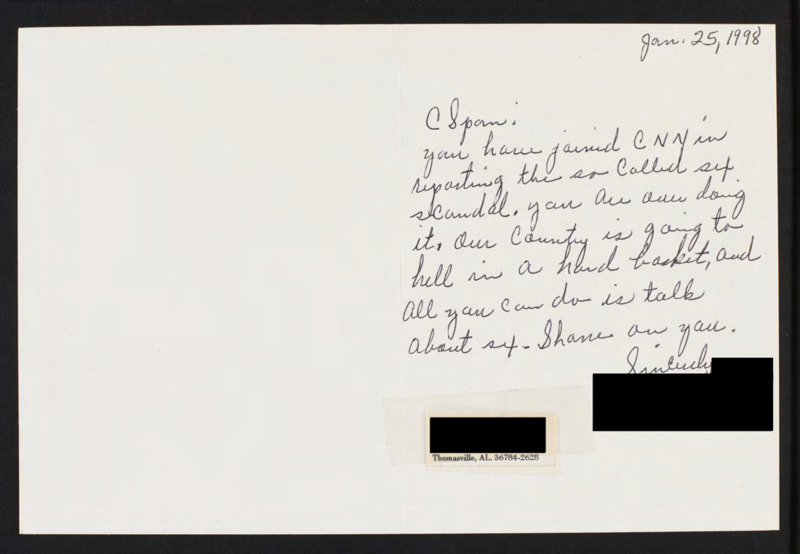 Jan. 25, 1998
C Span:
you have joined CNN in
reporting the so Called sex
scandal. you Are over doing
it. Our Country is going to
hell in A hand basket, and
All you Can do is talk
About sex. Shame on you.
Sincerely
Thomasville, AL. 36784-2628